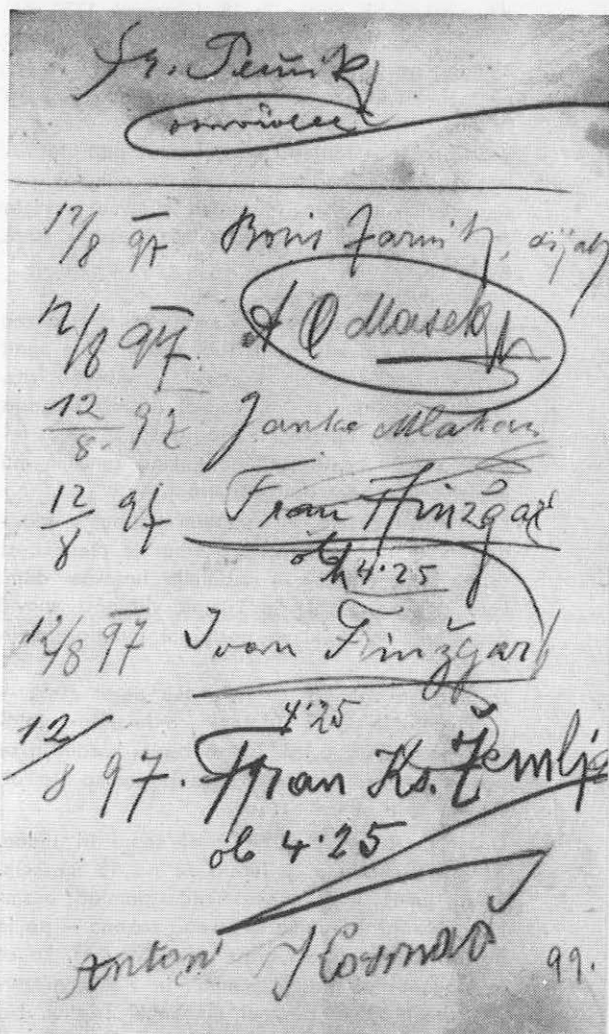 Fr. Pernik
osnovalec
12/8 97 Boris Zarnik, dijak
12/8 97. Masek
12/8. 97 Janko Mlakar
12/8 97 Fran Finžgar
ob 4·25
12/8 97 Ivan Finžgar
4·25
12/8 97. Fran Ks. Žemlja
ob 4·25
Anton 99.